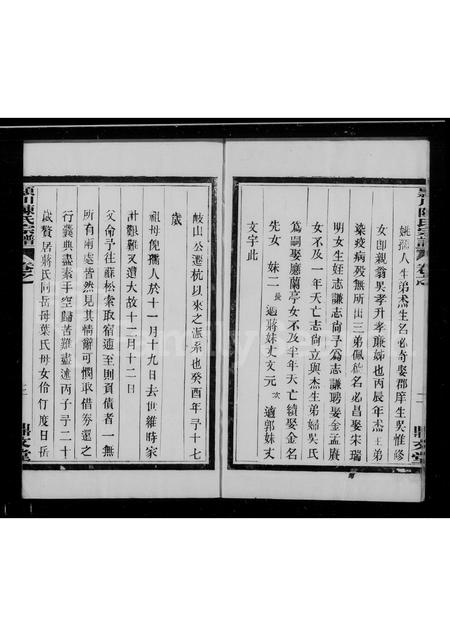 姚瀕人生弟焘生名必奇娶郡庠生吳惟修
女即親翁吳孝升孝廉姊也丙辰年焘三弟
染疫病殁無所出三弟佩敘名必昌娶宋瑞
明女生好志謙志尚子為志謙聘娶金孟賡
女不及一年天亡志尚立與杰生弟婦吳氏
為嗣娶廳蘭亭女不及半年天亡續娶金名
先女 妹二 長適蔣妹丈元 次適郭妹丈
文字此
岐山公遷杭以來之派系也癸酉年予十七
歲
祖母倪孺人於十一月十九日去世維時家
計艱難又遭大故十二月十二日
父命予往蘇松索取宿逋至則負債者一無
所有兩處皆然見其情辭可憫取借劵還之
行義典盡素手空歸苦難盡述丙子予二十
歲贅居蔣氏同岳母葉氏母女伶仃度日岳
潁川陳氏宗譜
卷之
鼎文堂